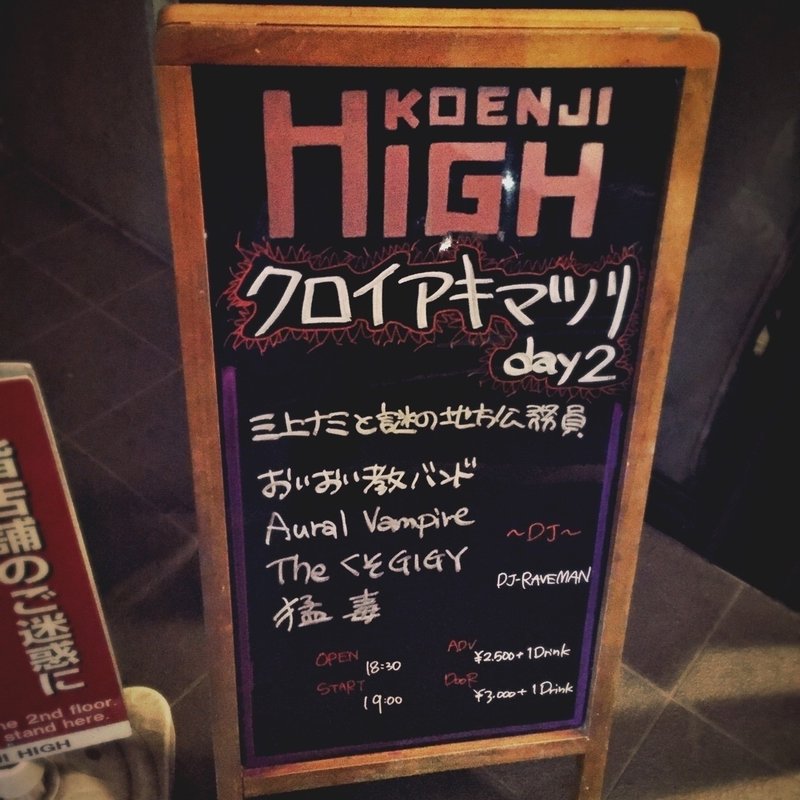 KOENJI
HIGH
クロイアキマツリ
day2
三上ナミと謎の地方公務員
おいおい教バンド
Aural Vampire
The くそGIGY
猛毒
〜DJ〜
DJ-RAVEMAN
OPEN 18:30
START 19:00
ADV ¥2.500+1Drink
DooR ¥3.000+1Drink
店舗のご迷惑に
2nd floor.
stand here.
HIGH